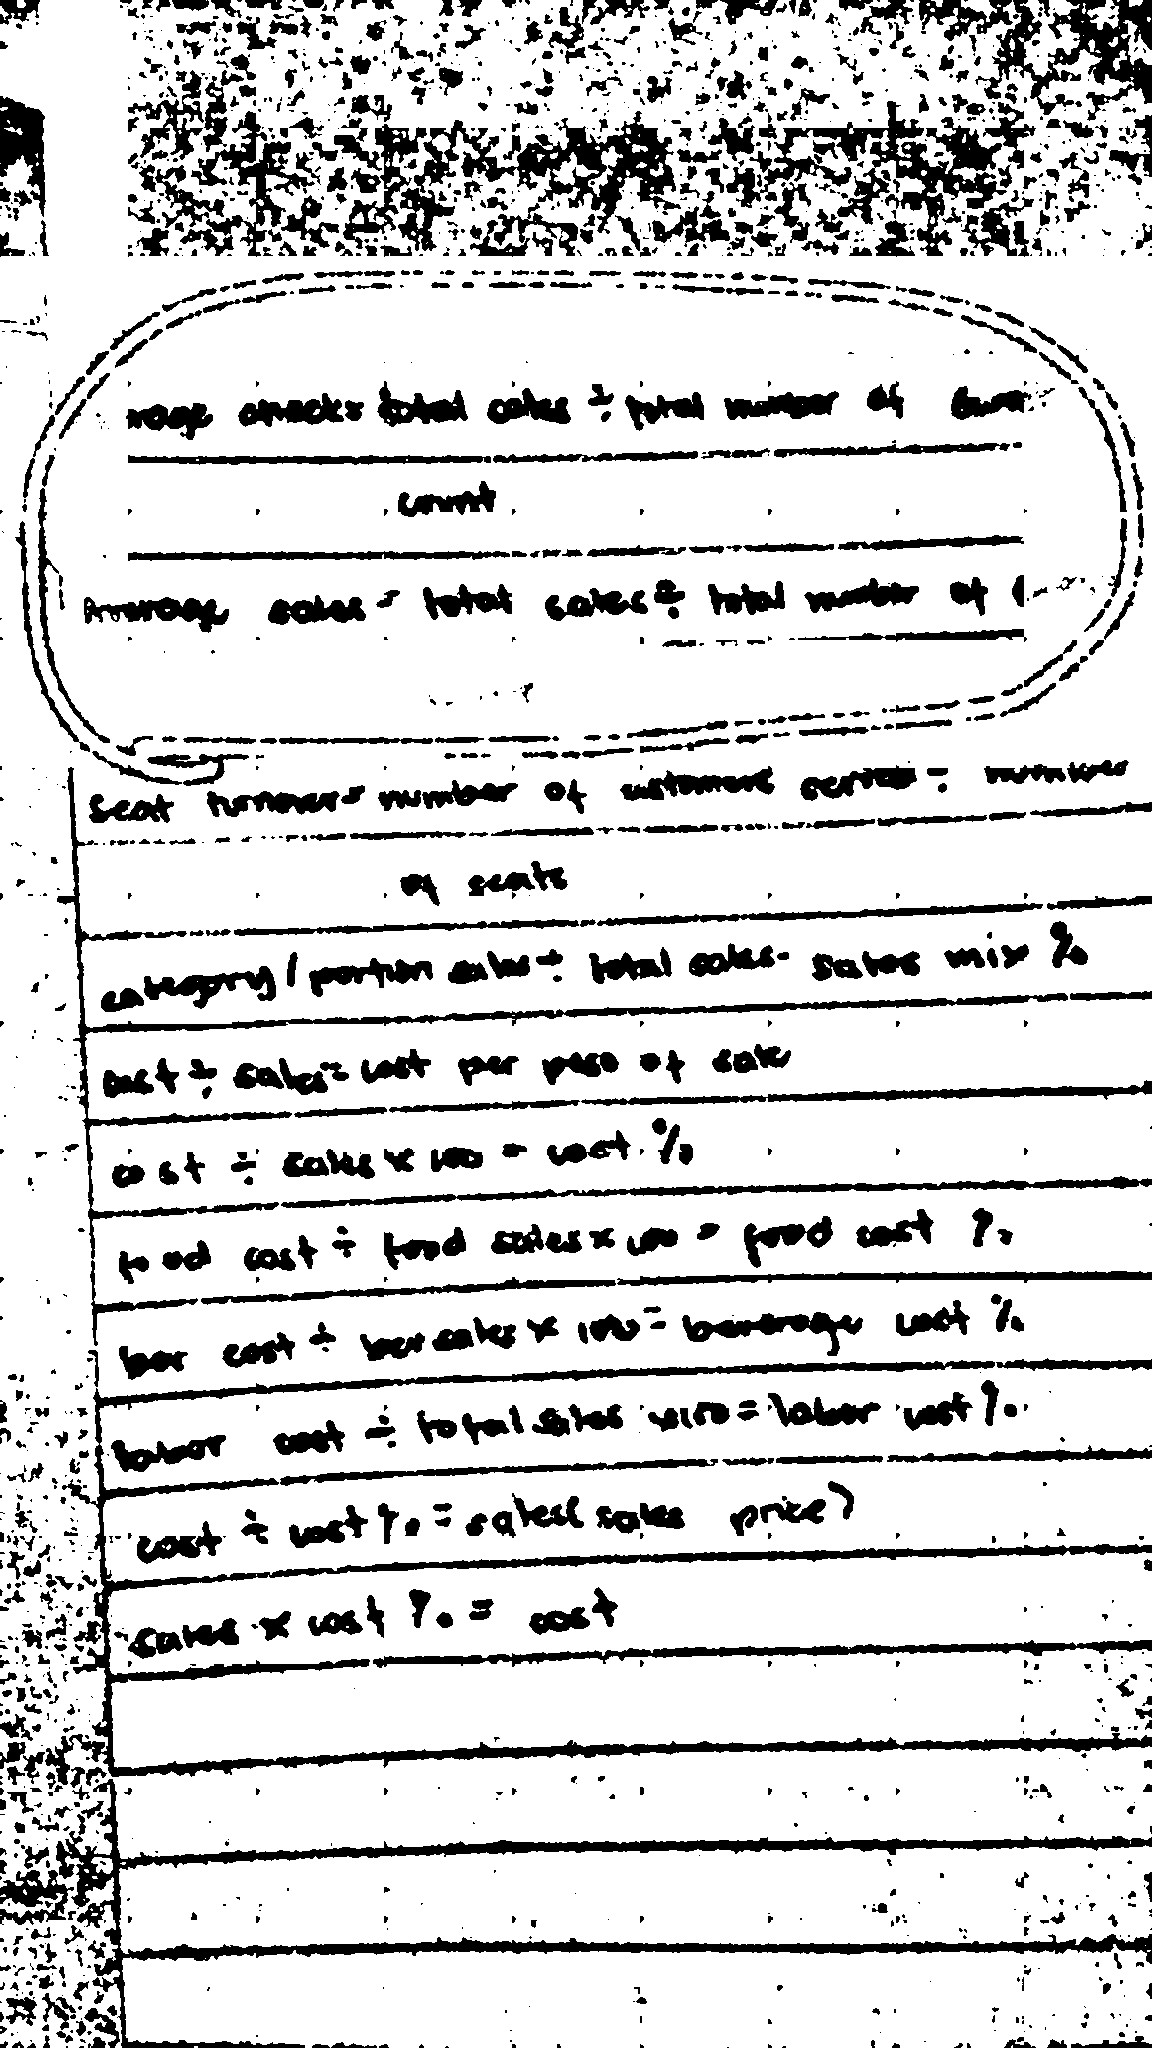 rage check= total sales ÷ total number of
count
Average sales = total sales ÷ total number of
Seat turnover= number of customers served ÷ number
of seats
category / portion sales ÷ total sales = sales mix %
cost ÷ sales = cost per peso of sale
cost ÷ sales x 100 = cost %
food cost ÷ food sales x 100 = food cost %
bar cost ÷ bar sales x 100 = beverage cost %
labor cost ÷ total sales x 100 = labor cost %
cost ÷ cost % = sales( sales price)
sales x cost % = cost